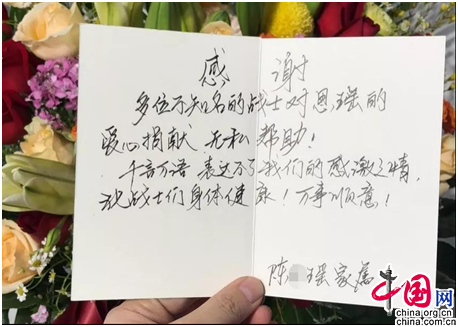 感 谢
多位不知名的战士对恩瑶的
爱心捐献 无私帮助!
千言万语 表达不了我们的感激之情,
祝战士们身体健康!万事顺意!
陈 瑶家属
中国网
china.org.cn
china.com.cn